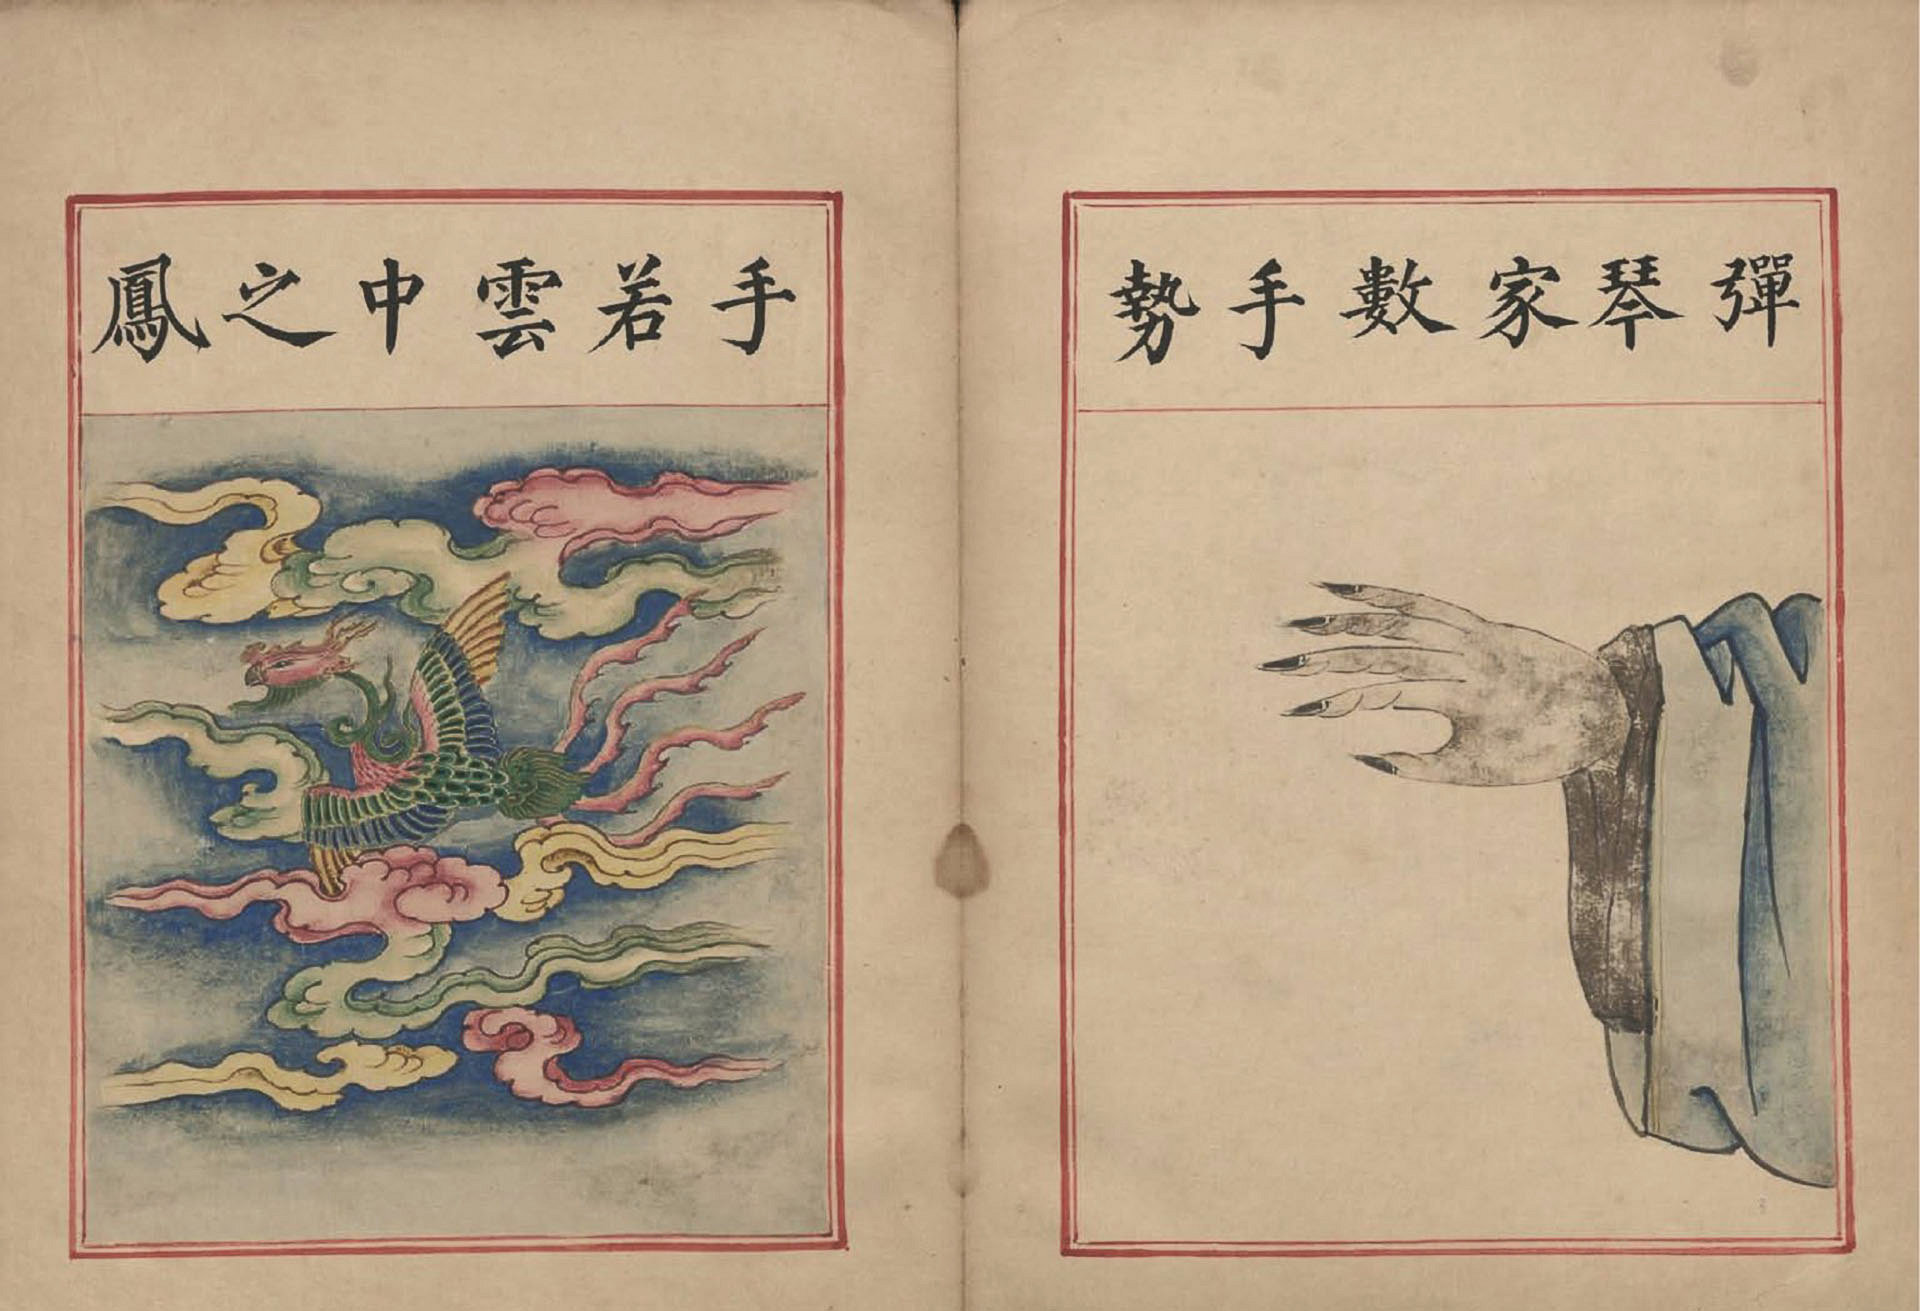 彈琴家數手勢
手若雲中之鳳